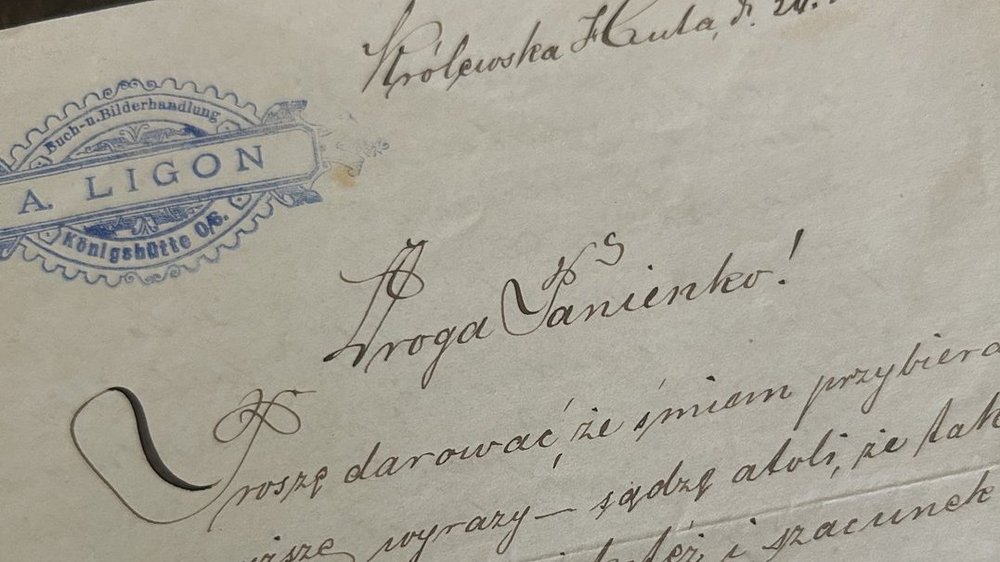 Królewska Huta, d. 24.
Buch-u. Bilderhandlung
A. LIGON
Königshütte O/S.
Droga Panienko!
Proszę darować, że śmiem przybiera
wyrazy – sądzę atoli, że tak
i szacunek